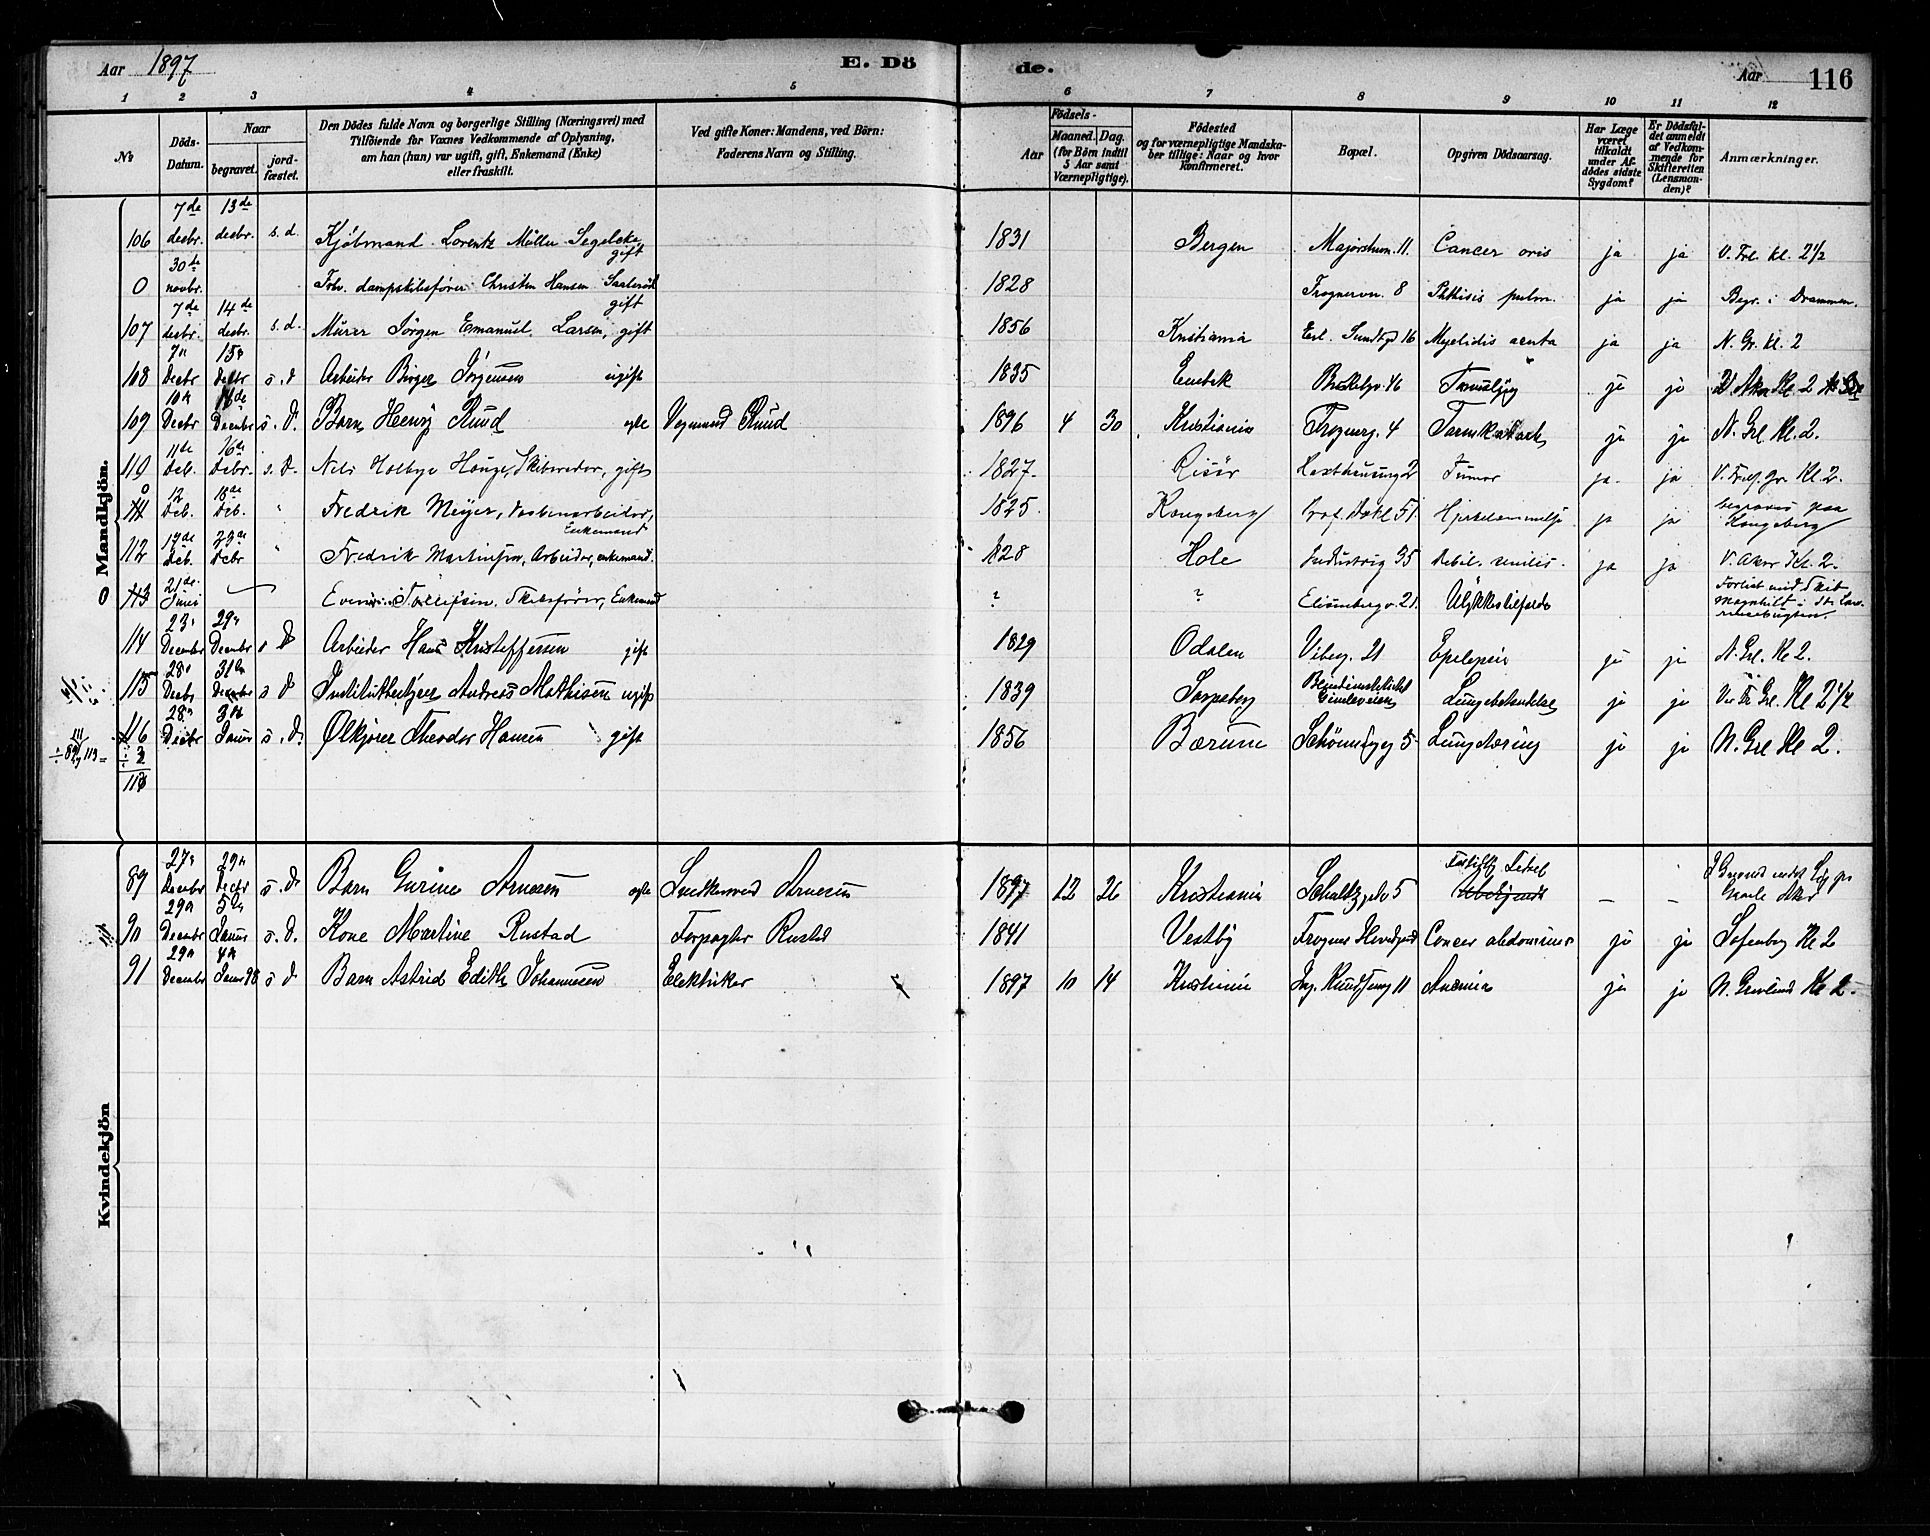 Aar 1897
E. Dö
de.
Aar
116
1 2 3 4 5 6 7 8 9 10 11 12
No
Döds-Datum.
Naar
begravet.
jord-fæstet.
Den Dödes fulde Navn og borgerlige Stilling (Næringsvei) med
Tilföiende for Voxnes Vedkommende af Oplysning,
om han (hun) var ugift, gift, Enkemand (Enke)
eller fraskilt.
Ved gifte Koner: Mandens, ved Börn:
Faderens Navn og Stilling.
Födsels-
Aar
Maaned. Dag.
(for Börn indtil
5 Aar samt
Værnepligtige).
Födested
og for værnepligtige Mandska-
ber tillige: Naar og hvor
konfirmeret.
Bopæl.
Opgiven Dödsaarsag.
Har Læge
været
tilkaldt
under Af-
dödes sidste
Sygdom?
Er Dödsfal-
det anmeldt
af Vedkom-
mende for
Skifteretten
(Lensman-
den)?
Anmærkninger.
Mandkjön.
106 7de desbr. 13de desbr. s.d. Kjöbmand Lorentz Müller Segelcke, gift 1831 Bergen Majorstuvn. 11. Cancer oris ja ja V. Frl. kl. 2 1/2
0 30te novbr. Forv. dampskibsförer Christen Hansen gift 1828 Frognervn. 8 Phthisis pulm. ja ja Begr. i Drammen.
107 7de desbr. 14de desbr. s.d. Murer Jörgen Emanuel Larsen, gift 1856 Kristiania Eil. Sundtgd 16 Myelidis acuta ja ja N. Gr. kl. 2
108 7n Decbr 15n Decbr s.d Arbeider Birger Jörgensen ugift 1835 Enebak 46 ja ja V Aker Kl. 2
109 10n Decbr 16de Decembr s.d. Barn Henry Ruud egte Vognmand Ruud 1896 4 30 Kristiania Frognerg. 4 Tarmkatarrh ja ja N. Grl. Kl. 2.
110 11de Deb. 16de Debr. s.d. Nils Holbye Houge, Skibsreder, gift 1827. Risör 2 Tumor ja. ja V. Frels. Gr. Kl. 2.
0 111 12 Deb. 18de Deb. " Fredrik Meyer, Vaabenarbeider, Enkemand 1825. Kongsberg Prof. Dahl 51. ja ja begraves paa Kongsberg
112 17de Deb. 23de Debr " Fredrik Martinsen, Arbeider, enkemand. 1828 Hole Industrig 35 Debil. senilis. ja ja V. Aker Kl. 2.
0 113 21de Juni Tollefsen. Skibsförer, Enkemand ? ? Elisenbergv. 21. Ulykkestilfælde Forlist med Skib
114 23n Decembr 29n Decembr s D Arbeider Hans Kristoffersen gift 1829 Odalen Vibesg. 21 Epilepsi ja ja N. Grl. Kl 2.
115 28n Decbr 31te Decembr s d Institutbestyrer Andreas Mathisen ugift 1839 Sarpsborg Lungebetændelse ja ja Vor Fr Grl. Kl 2 1/2
116 28n Decbr 3n Januar s.d. Ølkjörer Theodor Hansen gift 1856 Bærum Schönings g 5 Lungetæring ja ja N. Grl Kl 2.
÷ 3
113
Kvindekjön
89 27n Decembr 29n Decbr s.d. Barn Gurine Arnesen egte Snedkersvend Arnesen 1897 12 26 Kristiania Schultz gade 5 – –
90 29n Decembr 5n Januar s.d. Kone Martine Rustad Forpagter Rustad 1841 Vestby Frogner Hovedgaard Cancer abdominis ja ja Sofienberg Kl 2
91 29n Decembr 4n Januar 98 s d Barn Astrid Edith Johannesen Elektriker 1897 10 14 Kristiania 11 Anæmia ja ja N. Gravlund Kl 2.